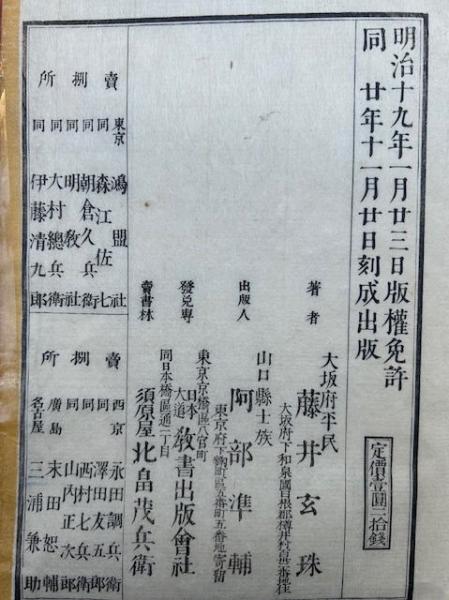 明治十九年一月廿三日版權免許
同 廿年十一月廿日刻成出版
定價壹圓二拾錢
大坂府平民
著者 藤井玄珠
山口縣士族
出版人 阿部準輔
東京府下麴町區五番町五番地寄留
東京京橋區八官町
發兌專 日本大道 敎書出版會社
同日本橋區通一丁目
賣書林 須原屋北畠茂兵衛
賣捌所
東京 鴻盟社
同 森江佐七
同 朝倉久兵衛
同 明敎社
同 大村總兵衛
同 伊藤清九郎
賣捌所
西京 永田調兵衛
同 澤田友五郎
同 西村七兵衛
同 山内正次郎
廣島 末田恕輔
名古屋 三浦兼助